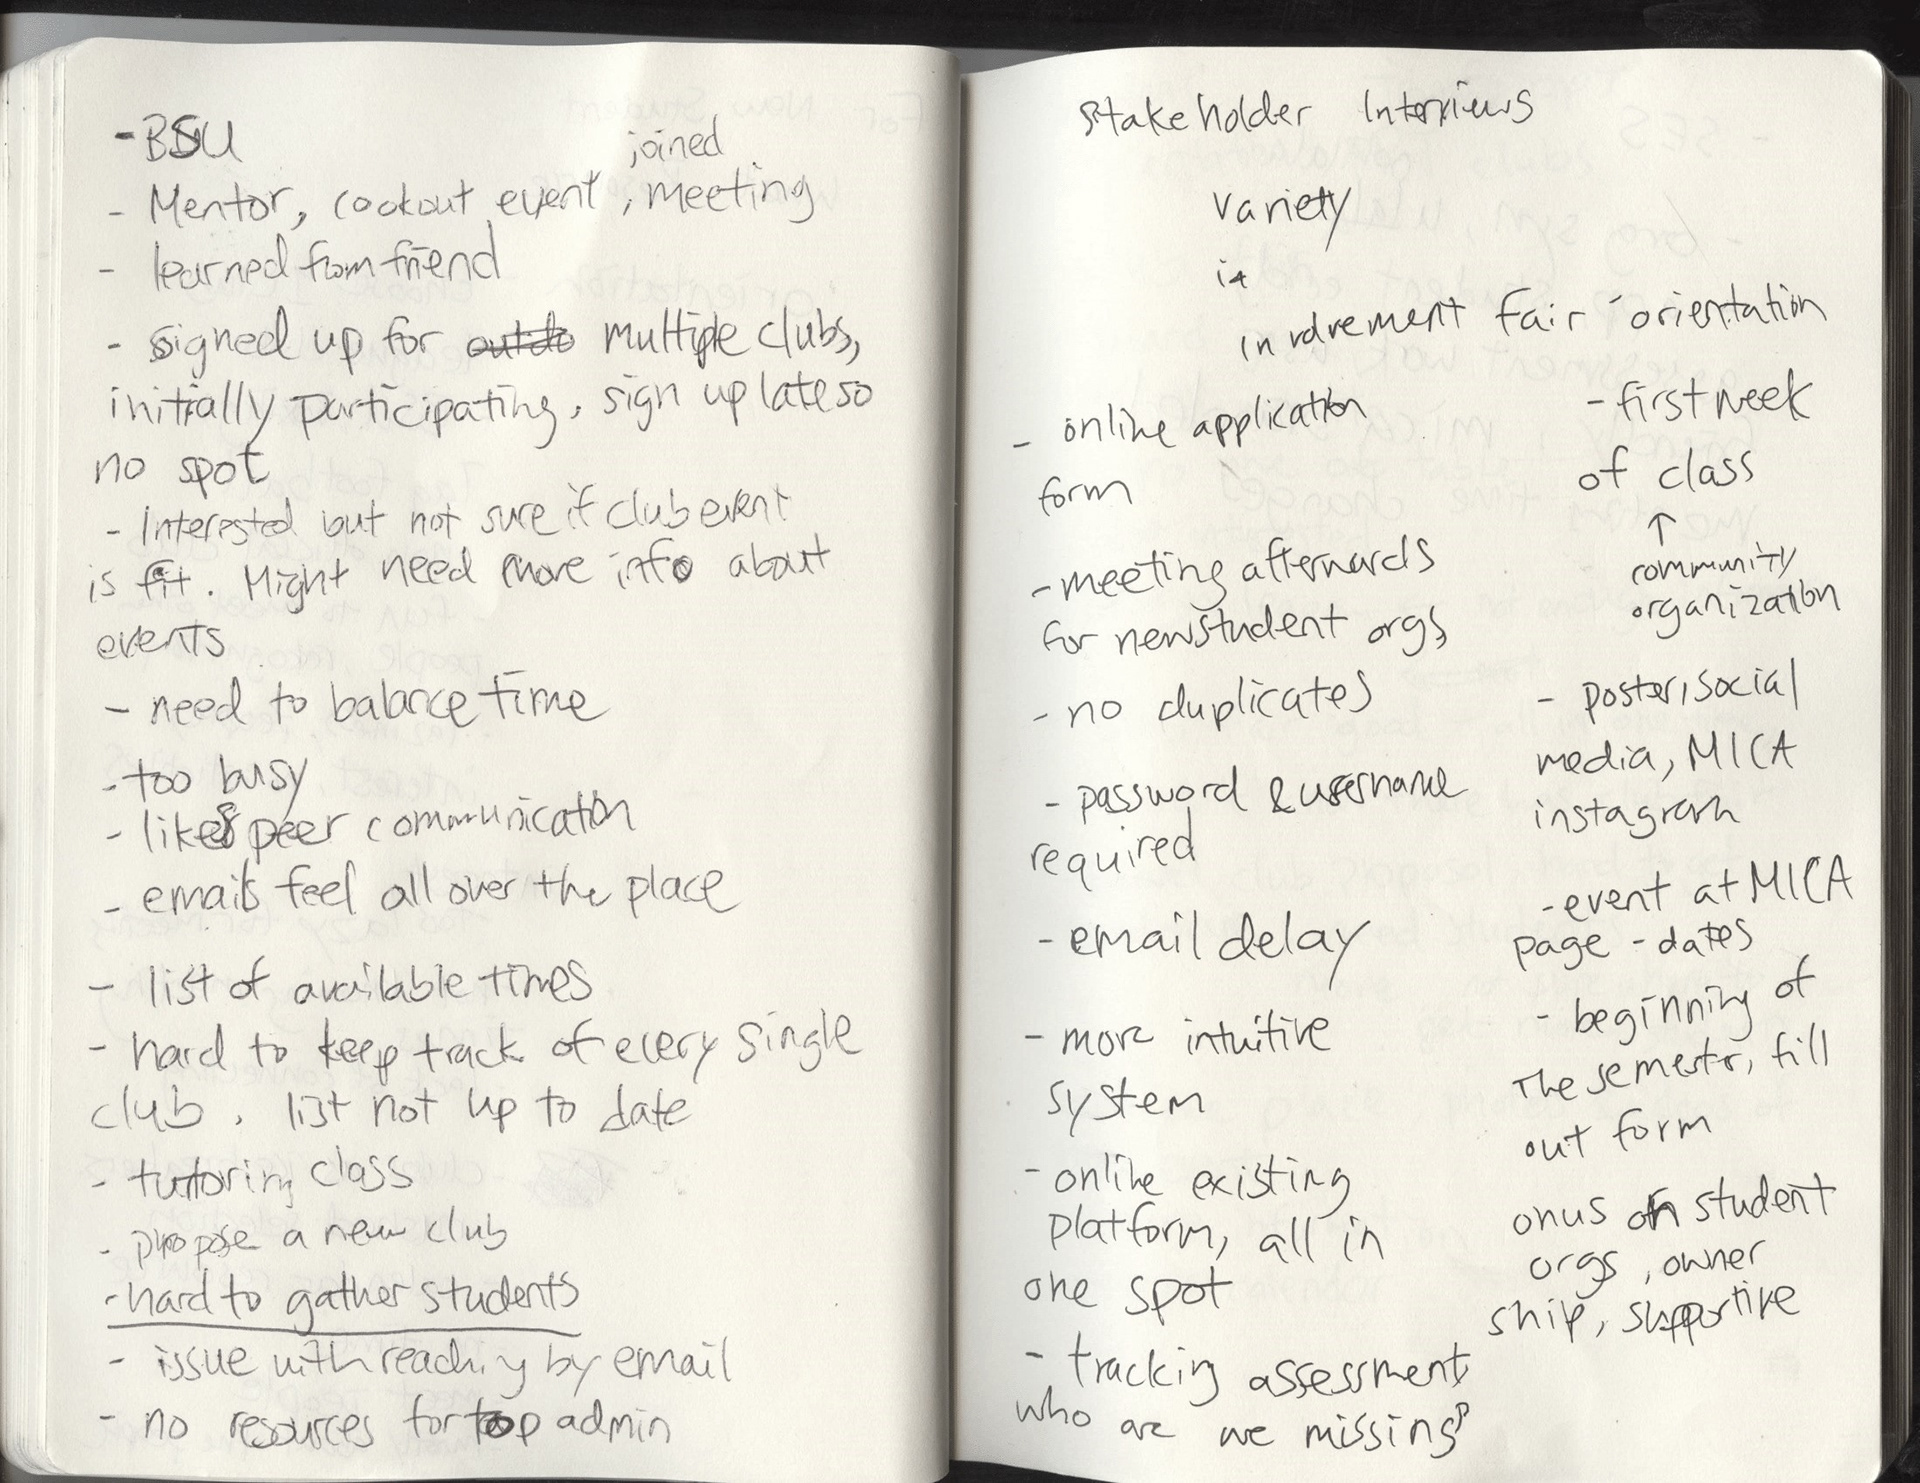 - BSU
joined
- Mentor, cookout event, meeting
- learned from friend
- signed up for multiple clubs,
initially participating, sign up late so
no spot
- Interested but not sure if club event
is fit. Might need more info about
events
- need to balance time
- too busy
- likes peer communication
- emails feel all over the place
- list of available times
- hard to keep track of every single
club, list not up to date
- tutoring class
- propose a new club
- hard to gather students
- issue with reaching by email
- no resources for top admin
Stakeholder Interviews
variety
involvement fair - orientation
- online application
form
- meeting afterwards
for new student orgs
- no duplicates
- password & username
required
- email delay
- more intuitive
system
- online existing
platform, all in
one spot
- tracking assessment,
who are we missing?
- first week
of class
↑
community
organization
- poster, social
media, MICA
instagram
- event at MICA
page - dates
- beginning of
the semester, fill
out form
onus on student
orgs, owner
ship, supportive